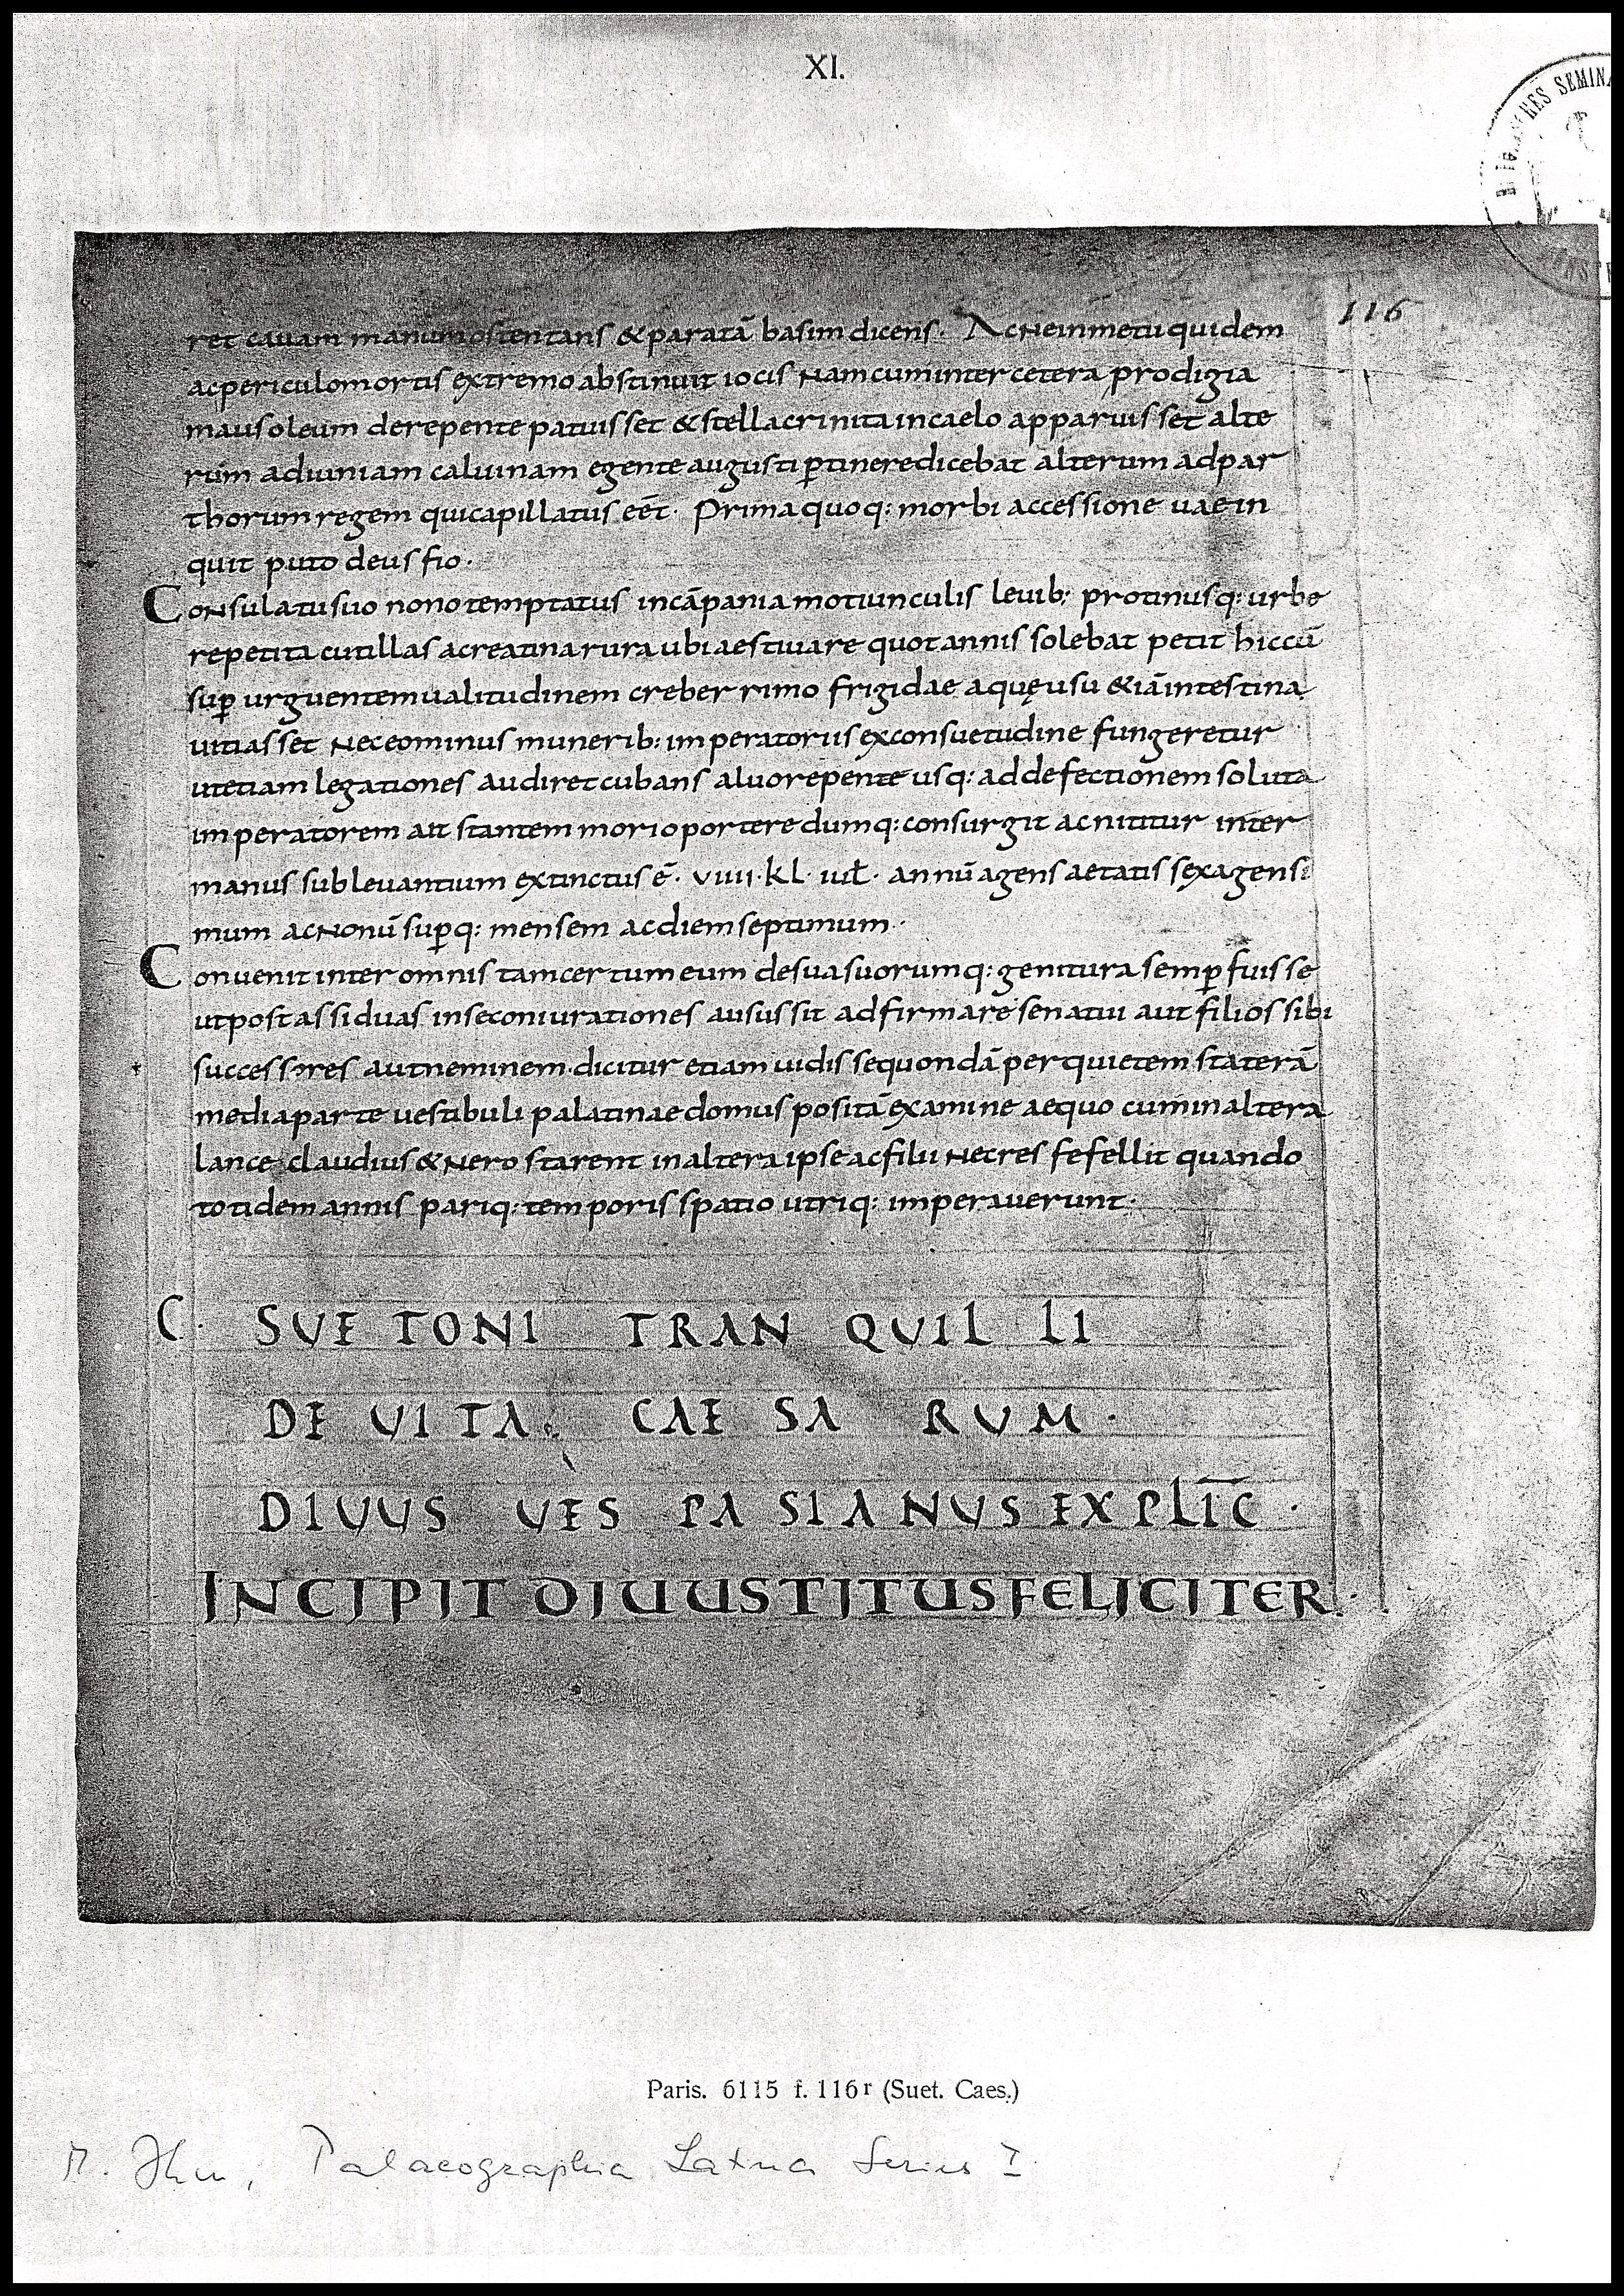 XI.
116
ret cauam manum ostentans & paratā basim dicens· Ac ne in metu quidem
ac periculo mortis extremo abstinuit iocis nam cum inter cetera prodigia
mausoleum derepente patuisset & stella crinita in caelo apparuisset alte
rum ad iuniam caluinam e gente augusti ꝑtinere dicebat alterum ad par
thorum regem qui capillatus eēt· Prima quoq: morbi accessione uae in
quit puto deus fio·
Consulatu suo nono temptatus in cāpania motiunculis leuib: protinusq: urbe
repetita cutillas ac reatina rura ubi aestiuare quot annis solebat petit hic cū
suꝑ urguentem ualitudinem creberrimo frigidae aquę usu & iā intestina
uitiasset nec eo minus munerib: imperatoriis ex consuetudine fungeretur
ut etiam legationes audiret cubans aluo repente usq: ad defectionem soluta
imperatorem ait stantem mori oportere dumq: consurgit ac nititur inter
manus subleuantium extinctus ē· VIIII·KL· iuł· annū agens aetatis sexagensi
mum ac nonū suꝑq: mensem ac diem septimum·
Conuenit inter omnis tam certum eum de sua suorumq: genitura semꝑ fuisse
ut post assiduas in se coniurationes ausus sit adfirmare senatui aut filios sibi
successores aut neminem· dicitur etiam uidisse quondā per quietem staterā
media parte uestibuli palatinae domus positā examine aequo cum in altera
lance claudius & nero starent in altera ipse ac filii nec res fefellit quando
totidem annis pariq: temporis spatio utriq: imperauerunt·
C· SUETONI TRANQUILLI
DE UITA· CAESARUM·
DIUUS UESPASIANUS EXPLIC̄·
INCIPIT DIUUS TITUS FELICITER·
Paris. 6115 f. 116r (Suet. Caes.)
M. Ihm, Palaeographia Latina Series I